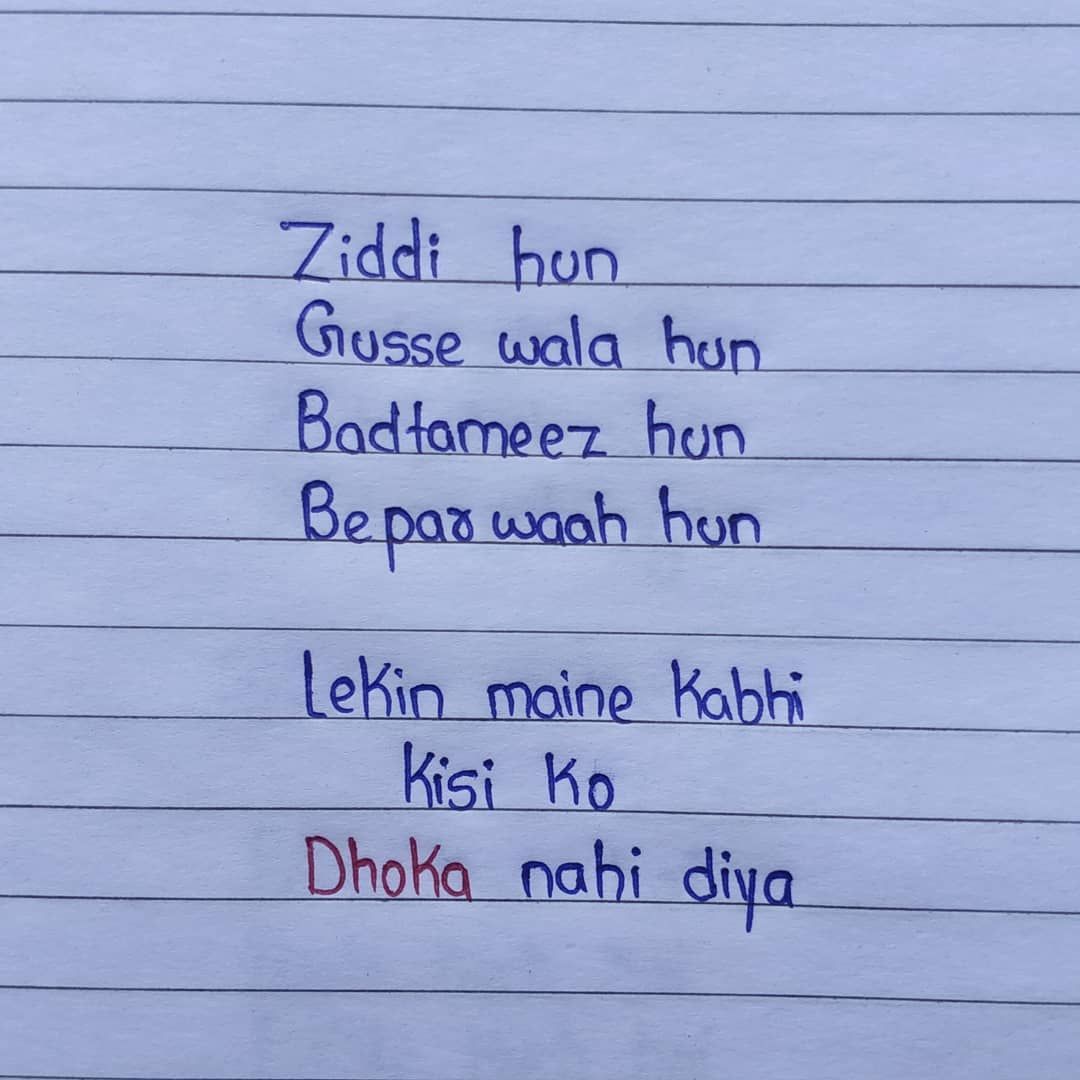 Ziddi hun
Gusse wala hun
Badtameez hun
Beparwaah hun
Lekin maine Kabhi
Kisi Ko
Dhoka nahi diya